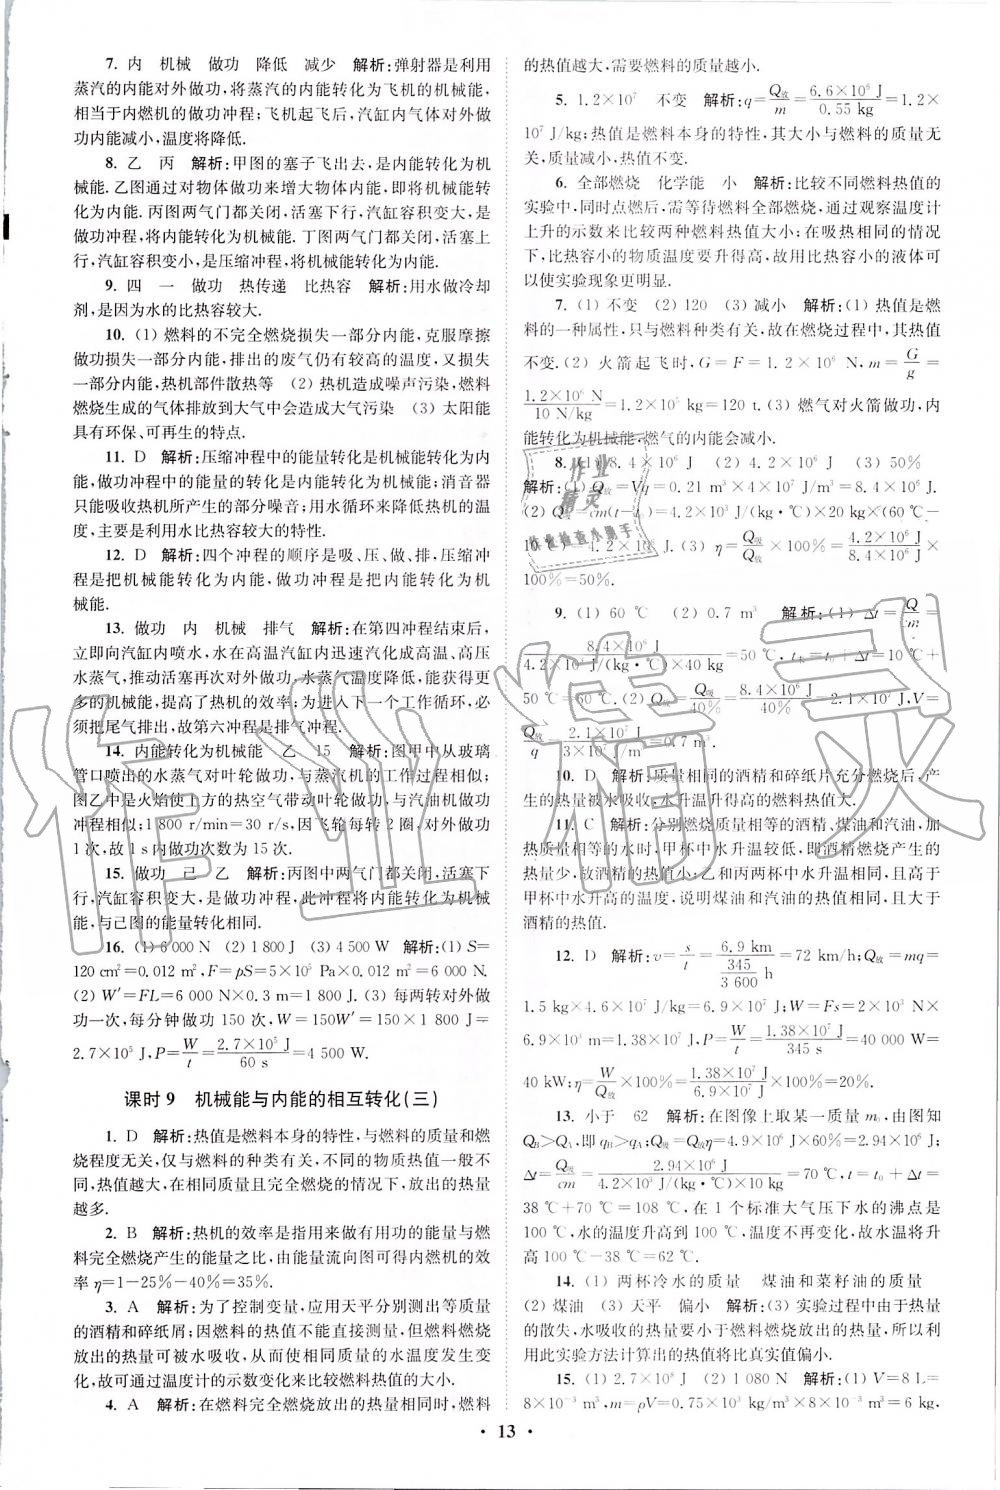 7. 内 机械 做功 降低 减少 解析:弹射器是利用
蒸汽的内能对外做功，将蒸汽的内能转化为飞机的机械能，
相当于内燃机的做功冲程;飞机起飞后，汽缸内气体对外做
功内能减小,温度将降低.
8. 乙 丙 解析:甲图的塞子飞出去，是内能转化为机
械能. 乙图通过对物体做功来增大物体内能，即将机械能转
化为内能. 丙图两气门都关闭，活塞下行，汽缸容积变大，是
做功冲程，将内能转化为机械能. 丁图两气门都关闭，活塞上
行，汽缸容积变小，是压缩冲程，将机械能转化为内能.
9. 四 一 做功 热传递 比热容 解析:用水做冷却
剂，是因为水的比热容较大.
10. (1) 燃料的不完全燃烧损失一部分内能，克服摩擦
做功损失一部分内能，排出的废气仍有较高的温度，又损失
一部分内能，热机部件散热等 (2) 热机造成噪声污染，燃料
燃烧生成的气体排放到大气中会造成大气污染 (3) 太阳能
具有环保、可再生的特点.
11. D 解析:压缩冲程中的能量转化是机械能转化为内
能，做功冲程中的能量的转化是内能转化为机械能;消音器
只能吸收热机所产生的部分噪音;用水循环来降低热机的温
度，主要是利用水比热容较大的特性.
12. D 解析:四个冲程的顺序是吸、压、做、排，压缩冲
程中是把机械能转化为内能，做功冲程是把内能转化为机
械能.
13. 做功 内 机械 排气 解析:在第四冲程结束后，
立即向汽缸内喷水，水在高温汽缸内迅速汽化成高温、高压
水蒸气，推动活塞再次对外做功、水蒸气温度降低，能获得更
多的机械能，提高了热机的效率;为进入下一个工作循环，必
须把尾气排出，故第六冲程是排气冲程.
14. 内能转化为机械能 乙 15 解析:图甲中从玻璃
管口喷出的水蒸气对叶轮做功，与蒸汽机的工作过程相似;
图乙中是火焰使上方的热空气带动叶轮做功，与汽油机做功
冲程相似;1 800 r/min=30 r/s，因飞轮每转 2 圈，对外做功
1 次，故 1 s 内做功次数为 15 次.
15. 做功 己 乙 解析:丙图中两气门都关闭，活塞下
行，汽缸容积变大，是做功冲程，此冲程将内能转化为机械
能，与己图的能量转化相同.
16. (1) 6 000 N (2) 1 800 J (3) 4 500 W 解析:(1) S=
120 cm²=0.012 m²，F=pS=5×10⁵ Pa×0.012 m²=6 000 N.
(2) W′=FL=6 000 N×0.3 m=1 800 J. (3) 每两转对外做
功一次，每分钟做功 150 次，W=150W′=150×1 800 J=
2.7×10⁵ J，P=W/t=2.7×10⁵ J/60 s=4 500 W.
课时 9 机械能与内能的相互转化(三)
1. D 解析:热值是燃料本身的特性，与燃料的质量和燃
烧程度无关，仅与燃料的种类有关，不同的物质热值一般不
同，热值越大，在相同质量且完全燃烧的情况下，放出的热量
越多.
2. B 解析:热机的效率是指用来做有用功的能量与燃
料完全燃烧产生的能量之比，由能量流向图可得内燃机的效
率 η=1−25%−40%=35%.
3. A 解析:为了控制变量，应用天平分别测出等质量
的酒精和碎纸屑;因燃料的热值不能直接测量，但燃料燃烧
放出的热量可被水吸收，从而使相同质量的水温度发生变
化，故可通过温度计的示数变化来比较热值的大小.
4. A 解析:在燃料完全燃烧放出的热量相同时，燃料
的热值越大,需要燃料的质量越小.
5. 1.2×10⁷ 不变 解析:q=Q放/m=6.6×10⁶ J/0.55 kg=1.2×
10⁷ J/kg;热值是燃料本身的特性，其大小与燃料的质量无
关,质量减小,热值不变.
6. 全部燃烧 化学能 小 解析:比较不同燃料热值的
实验中，同时点燃后，需等待燃料全部燃烧，通过观察温度计
上升的示数来比较两种燃料热值大小;在吸热相同的情况
下，比热容小的物质温度要升得高，故用比热容小的液体可
以使实验现象更明显.
7. (1) 不变 (2) 120 (3) 减小 解析:(1) 热值是燃
料的一种属性，只与燃料种类有关，故在燃烧过程中，其热值
不变. (2) 火箭起飞时，G=F=1.2×10⁶ N，m=G/g=
1.2×10⁶ N/10 N/kg=1.2×10⁵ kg=120 t. (3) 燃气对火箭做功，内
能转化为机械能,燃气的内能会减小.
8. (1) 8.4×10⁶ J (2) 4.2×10⁶ J (3) 50%
解析:(1) Q放=Vq=0.21 m³×4×10⁷ J/m³=8.4×10⁶ J.
(2) Q吸=cm(t−t₀)=4.2×10³ J/(kg·℃)×20 kg×(60 ℃−
10 ℃)=4.2×10⁶ J. (3) η=Q吸/Q放×100%=4.2×10⁶ J/8.4×10⁶ J×
100%=50%.
9. (1) 60 ℃ (2) 0.7 m³ 解析:(1) Δt=Q/cm=
8.4×10⁶ J/4.2×10³ J/(kg·℃)×40 kg=50 ℃，t末=t₀+Δt=10℃+
50 ℃=60 ℃. (2) Q放=Q吸/40%=8.4×10⁶ J/40%=2.1×10⁷ J，V=
Q放/q=2.1×10⁷ J/3×10⁷ J/m³=0.7 m³.
10. D 解析:质量相同的酒精和碎纸片充分燃烧后，产
生的热量被水吸收，水升温升得高的燃料热值大.
11. C 解析:分别燃烧质量相等的酒精、煤油和汽油，加
热质量相等的水时，甲杯中水升温较低，即酒精燃烧产生的
热量少，故酒精的热值小;乙和丙两杯中水升温相同，且高于
甲杯中水升高的温度，说明煤油和汽油的热值相同，且大于
酒精的热值.
12. D 解析:v=s/t=6.9 km/(345/3 600 h)=72 km/h;Q放=mq=
1.5 kg×4.6×10⁷ J/kg=6.9×10⁷ J;W=Fs=2×10³ N×
6.9×10³ m=1.38×10⁷ J，P=W/t=1.38×10⁷ J/345 s=40 000 W=
40 kW;η=W/Q放×100%=1.38×10⁷ J/6.9×10⁷ J×100%=20%.
13. 小于 62 解析:在图像上取某一质量 m₀，由图知
QB>QA，即 qB>qA;Q吸=Q放η=4.9×10⁶ J×60%=2.94×10⁶ J;
Δt=Q吸/cm=2.94×10⁶ J/4.2×10³ J/(kg·℃)×10 kg=70 ℃，t=t₀+Δt=
38 ℃+70 ℃=108 ℃，在 1 个标准大气压下水的沸点是
100 ℃，水的温度升高到 100 ℃，温度不再变化，故水温将升
高 100 ℃−38 ℃=62 ℃.
14. (1) 两杯冷水的质量 煤油和菜籽油的质量
(2) 煤油 (3) 天平 偏小 解析:(3) 实验过程中由于热量
的散失，水吸收的热量要小于燃料燃烧放出的热量，所以利
用此实验方法计算出的热值将比真实值偏小.
15. (1) 2.7×10⁸ J (2) 1 080 N 解析:(1) V=8 L=
8×10⁻³ m³，m=ρV=0.75×10³ kg/m³×8×10⁻³ m³=6 kg，
• 13 •
作业精灵
作业检查小助手
作业精灵